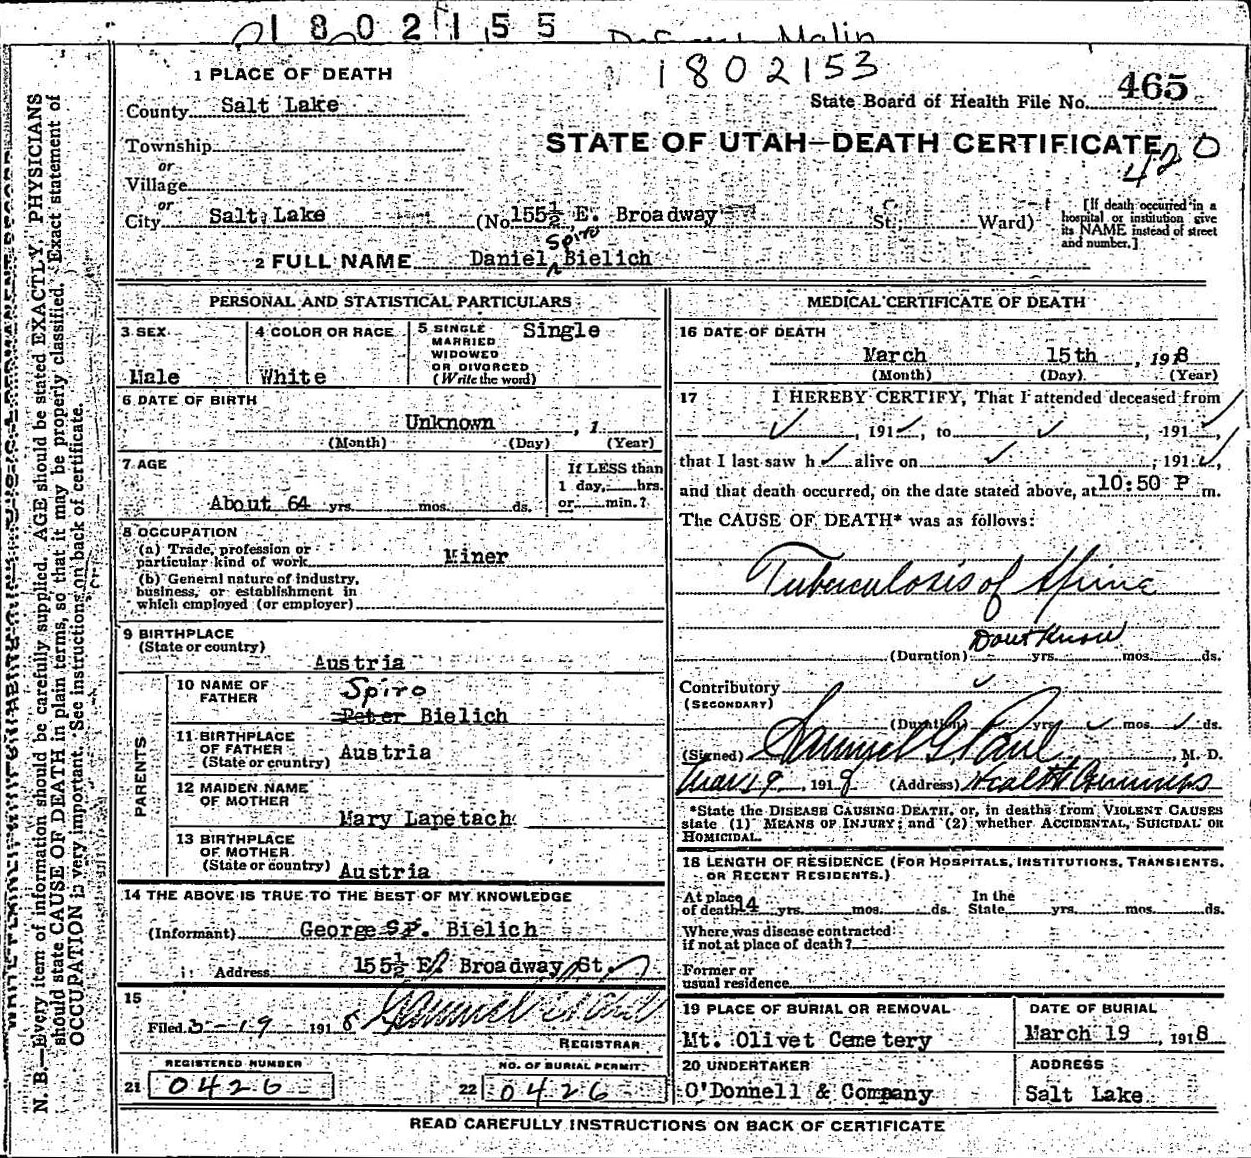 1802155
1802153
465
1 PLACE OF DEATH
State Board of Health File No.
County Salt Lake
STATE OF UTAH—DEATH CERTIFICATE
420
Township
or
Village
or
City Salt Lake (No. 155½ E. Broadway St. Ward) [If death occurred in a hospital or institution give its NAME instead of street and number.]
Spiro
2 FULL NAME Daniel Bielich
PERSONAL AND STATISTICAL PARTICULARS
3 SEX Male
4 COLOR OR RACE White
5 SINGLE MARRIED WIDOWED OR DIVORCED (Write the word) Single
6 DATE OF BIRTH
Unknown , 1
(Month) (Day) (Year)
7 AGE
About 64 yrs. mos. ds.
If LESS than 1 day, hrs. or min.?
8 OCCUPATION
(a) Trade, profession or particular kind of work Miner
(b) General nature of industry, business, or establishment in which employed (or employer)
9 BIRTHPLACE
(State or country)
Austria
PARENTS
10 NAME OF FATHER Spiro
Peter Bielich
11 BIRTHPLACE OF FATHER (State or country) Austria
12 MAIDEN NAME OF MOTHER
Mary Lapetach
13 BIRTHPLACE OF MOTHER (State or country) Austria
14 THE ABOVE IS TRUE TO THE BEST OF MY KNOWLEDGE
(Informant) George Sp. Bielich
Address 155½ E. Broadway St.
15
Filed 3-19 1918
REGISTRAR
REGISTERED NUMBER
21 0426
NO. OF BURIAL PERMIT
22 0426
MEDICAL CERTIFICATE OF DEATH
16 DATE OF DEATH
March 15th , 1918
(Month) (Day) (Year)
17 I HEREBY CERTIFY, That I attended deceased from
, 191 , to , 191 ,
that I last saw h alive on , 191 ,
and that death occurred, on the date stated above, at 10:50 P m.
The CAUSE OF DEATH* was as follows:
Tuberculosis of Spine
Dont Know
(Duration) yrs. mos. ds.
Contributory
(SECONDARY)
(Duration) yrs. mos. ds.
(Signed) Samuel G Paul , M. D.
Mar 19, 1918 (Address) Health Commiss
*State the DISEASE CAUSING DEATH, or, in deaths from VIOLENT CAUSES
state (1) MEANS OF INJURY; and (2) whether ACCIDENTAL, SUICIDAL OR
HOMICIDAL.
18 LENGTH OF RESIDENCE (FOR HOSPITALS, INSTITUTIONS, TRANSIENTS,
OR RECENT RESIDENTS.)
At place of death 14 yrs. mos. ds. In the State yrs. mos. ds.
Where was disease contracted
if not at place of death?
Former or
usual residence
19 PLACE OF BURIAL OR REMOVAL
Mt. Olivet Cemetery
DATE OF BURIAL
March 19 , 1918
20 UNDERTAKER
O'Donnell & Company
ADDRESS
Salt Lake
READ CAREFULLY INSTRUCTIONS ON BACK OF CERTIFICATE
N. B.—Every item of information should be carefully supplied. AGE should be stated EXACTLY. PHYSICIANS
should state CAUSE OF DEATH in plain terms, so that it may be properly classified. Exact statement of
OCCUPATION is very important. See instructions on back of certificate.